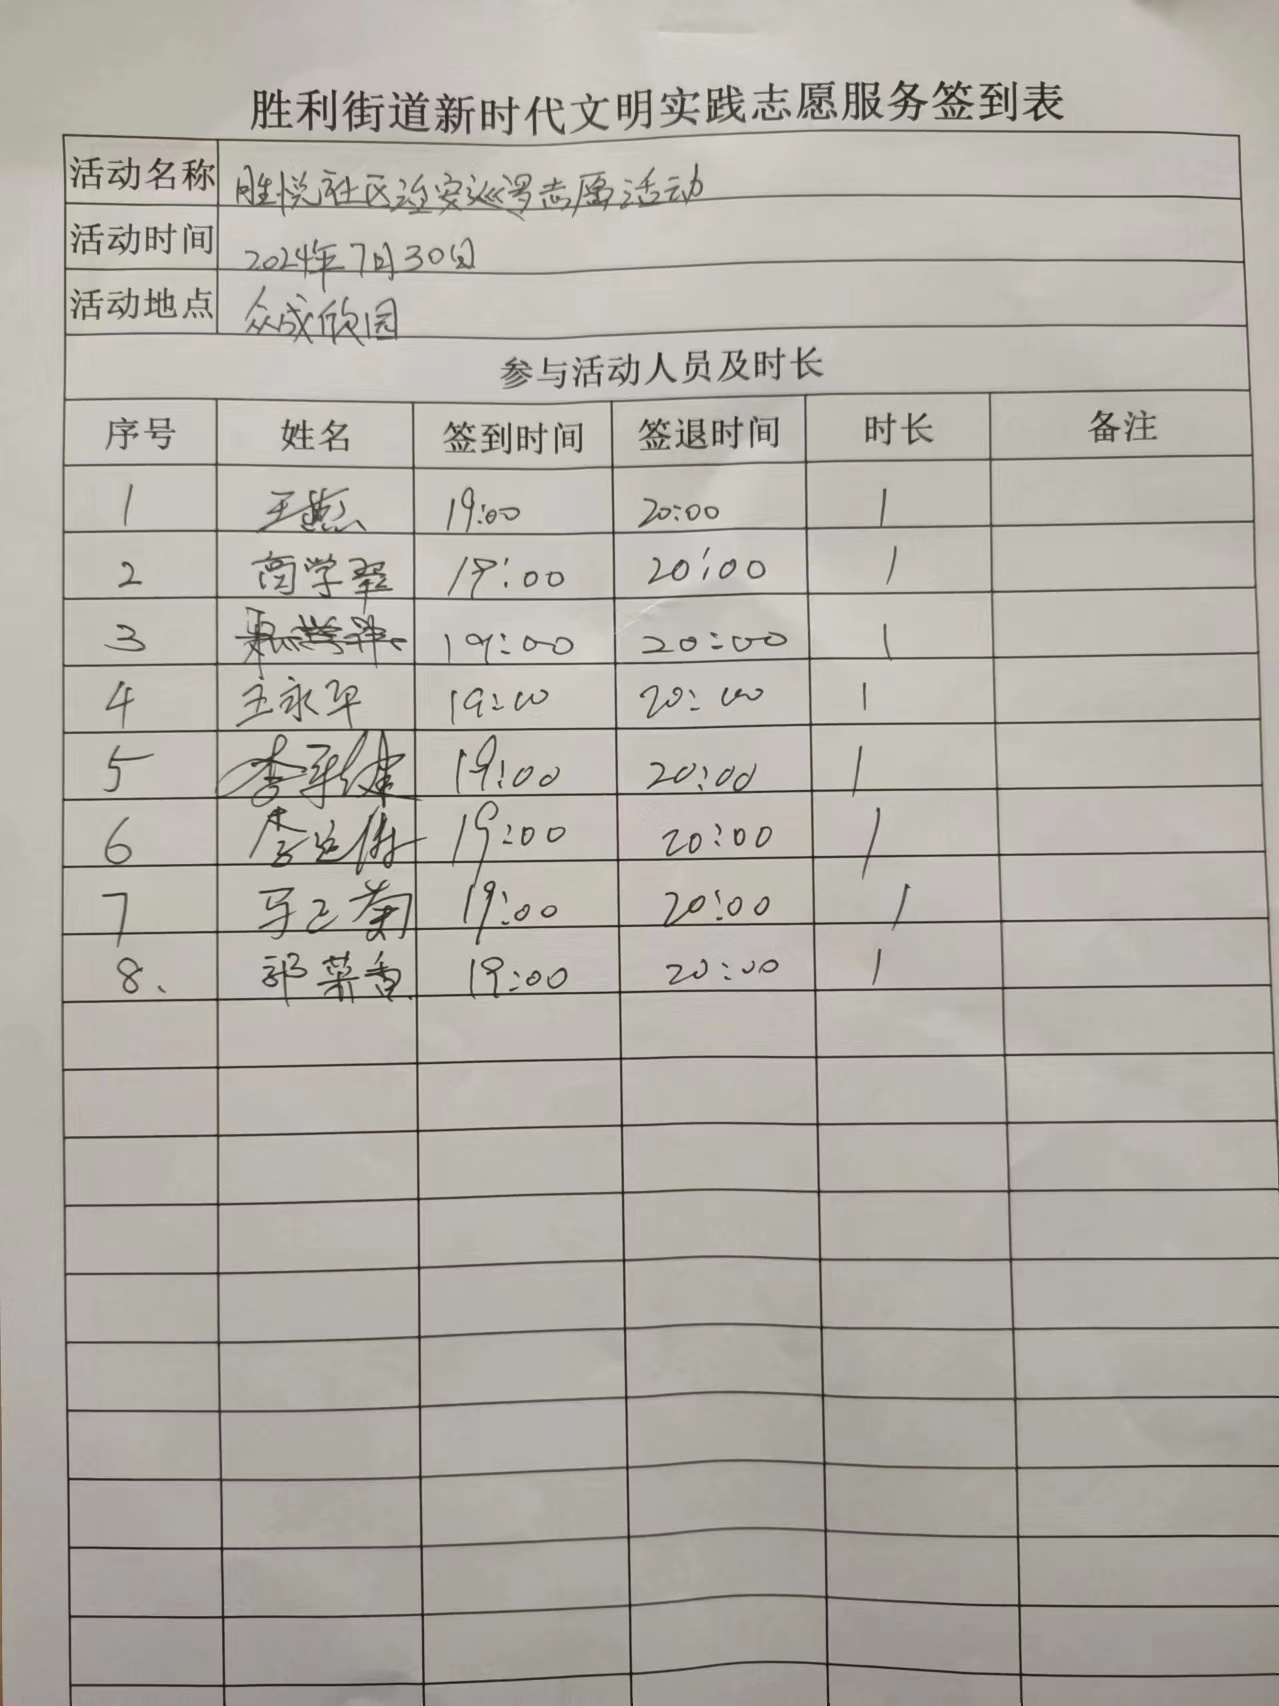 胜利街道新时代文明实践志愿服务签到表
活动名称 胜悦社区治安巡逻志愿活动
活动时间 2024年7月30日
活动地点 众成欣园
参与活动人员及时长
序号 姓名 签到时间 签退时间 时长 备注
1 王燕 19:00 20:00 1
2 商学翠 19:00 20:00 1
3 19:00 20:00 1
4 王永平 19:00 20:00 1
5 李 19:00 20:00 1
6 李 19:00 20:00 1
7 19:00 20:00 1
8、 郭菊香 19:00 20:00 1